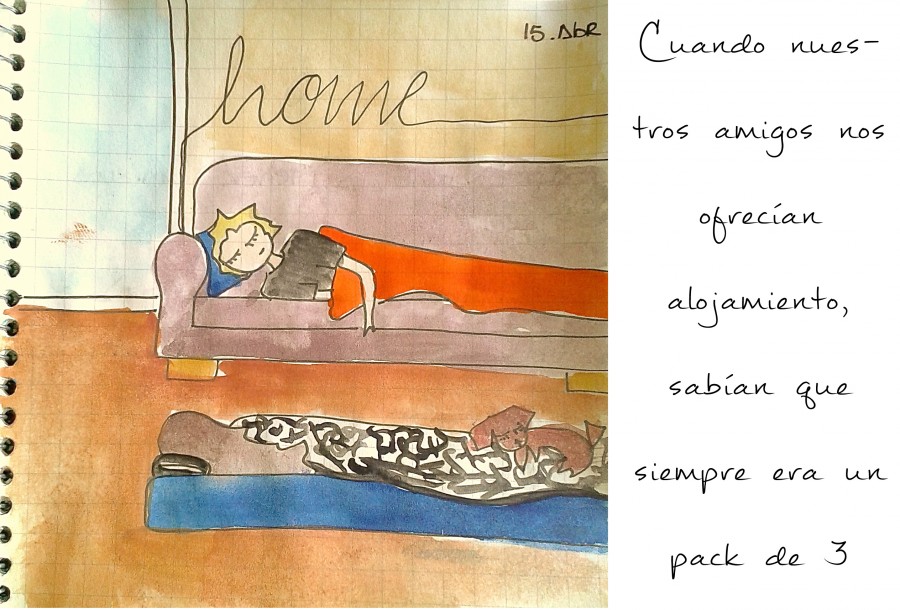 15. Abr
home
Cuando nues-
tros amigos nos
ofrecían
alojamiento,
sabían que
siempre era un
pack de 3